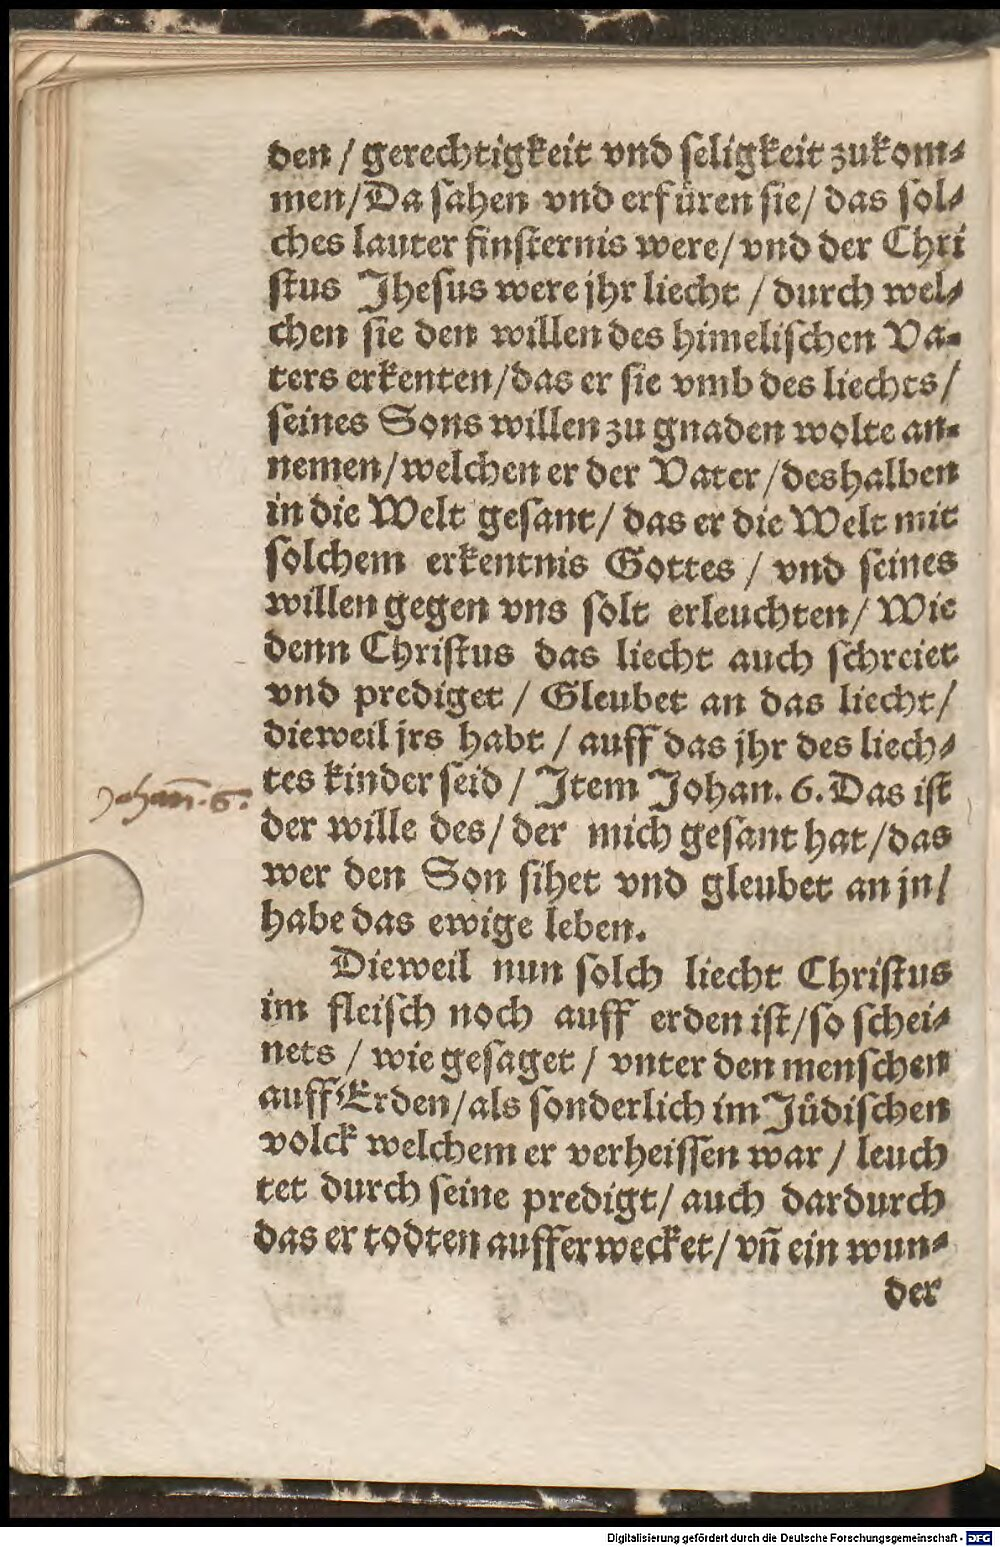 den / gerechtigkeit vnd seligkeit zukom⸗
men/Da sahen vnd erfüren sie/ das sol⸗
ches lauter finsternis were/ vnd der Chri
stus Jhesus were jhr liecht / durch wel⸗
chen sie den willen des himelischen Va⸗
ters erkenten/das er sie vmb des liechts/
seines Sons willen zu gnaden wolte an⸗
nemen/welchen er der Vater/deshalben
in die Welt gesant/ das er die Welt mit
solchem erkentnis Gottes / vnd seines
willen gegen vns solt erleuchten/ Wie
denn Christus das liecht auch schreiet
vnd prediget / Gleubet an das liecht/
dieweil jrs habt / auff das jhr des liech⸗
tes kinder seid / Jtem Johan. 6. Das ist
Johan̄. 6.
der wille des/ der mich gesant hat/das
wer den Son sihet vnd gleubet an jn/
habe das ewige leben.
Dieweil nun solch liecht Christus
im fleisch noch auff erden ist/so schei⸗
nets / wie gesaget / vnter den menschen
auff Erden/als sonderlich im Jüdischen
volck welchem er verheissen war / leuch
tet durch seine predigt/ auch dardurch
das er todten aufferwecket/ vn̄ ein wun⸗
der
Digitalisierung gefördert durch die Deutsche Forschungsgemeinschaft - DFG